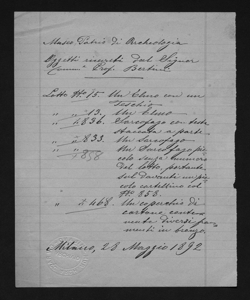 Museo Patrio di Archeologia
Oggetti inviati dal Signor
Comm. Prof. Bertini
Lotto No 15. Un Elmo con un
Teschio
" " 13. Un Elmo
" " 4836. Sarcofago con testa
staccata a parte
" " 833. Un Sarcofago
" " 858 Un Sarcofago pic
colo senza numero
del lotto, portante
sul davanti un pic
colo cartellino col
No 853.
" " 2468. Un coperchio di
cartone conte
nente diversi fra
menti in bronzo.
Milano, 28 Maggio 1892